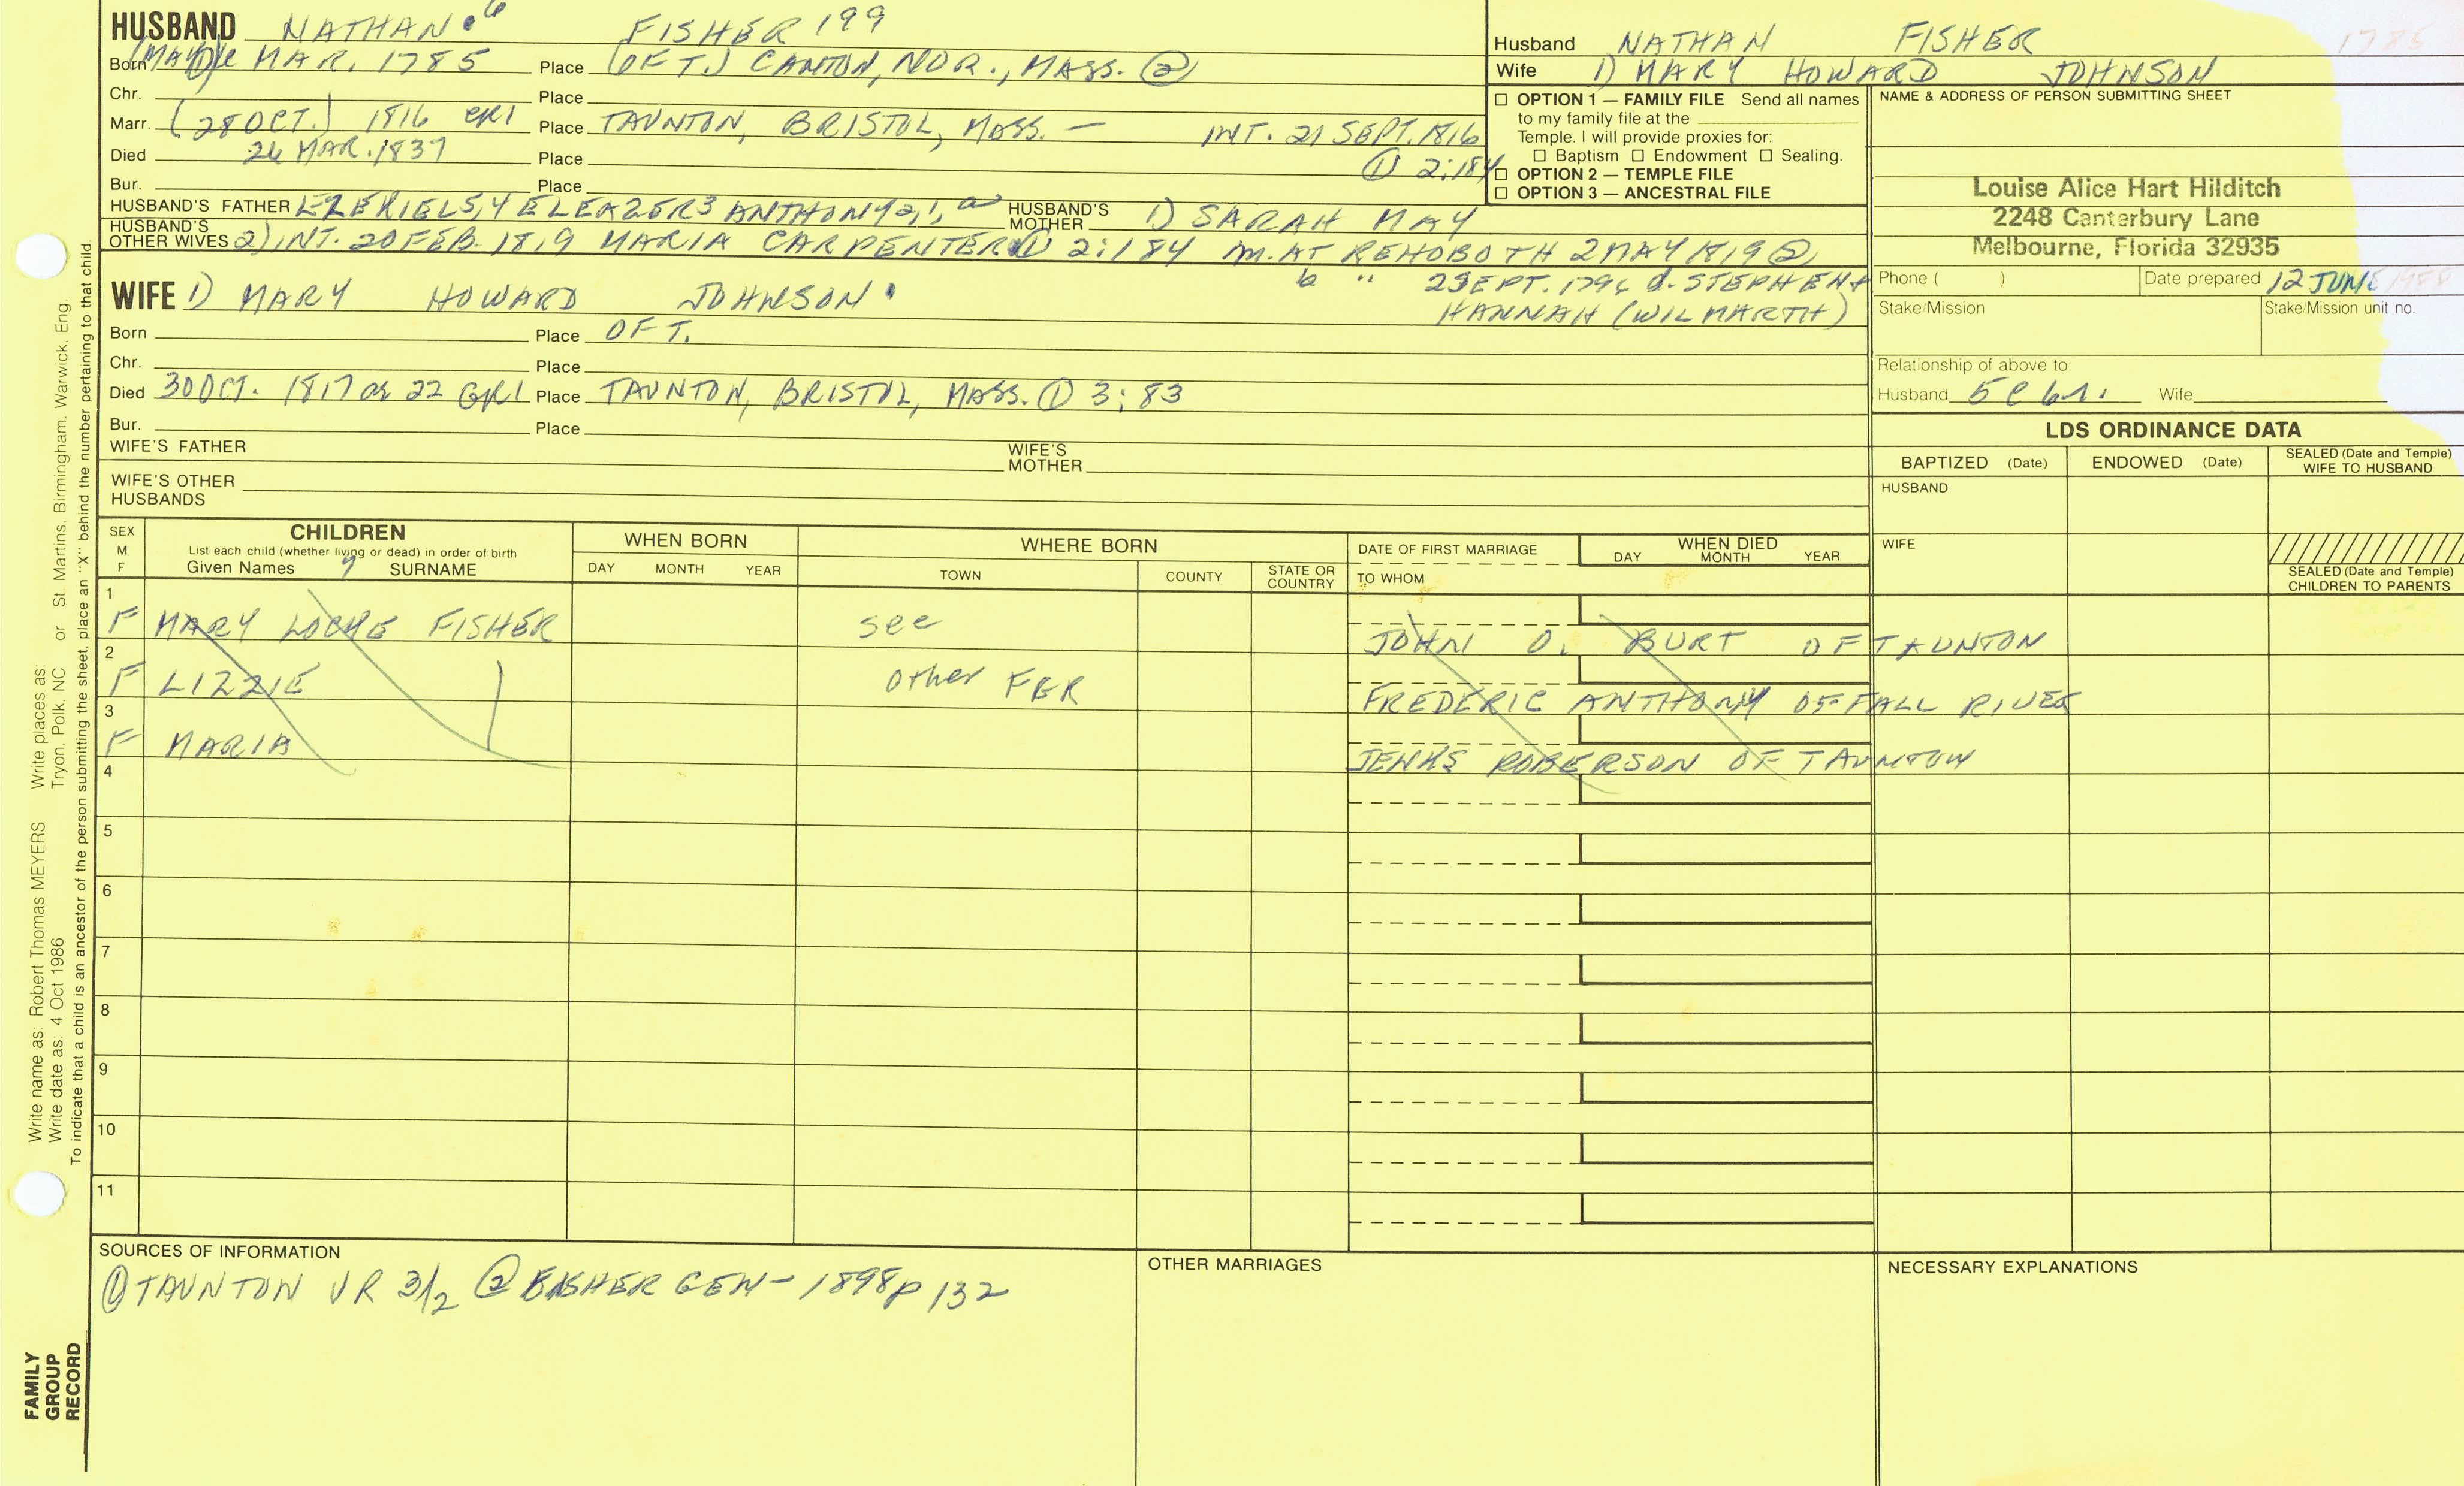 HUSBAND NATHAN 6 FISHER 199
Born MAR. 1785 Place (OF T.) CANTON, NOR., MASS. ②
Chr. Place
Marr. (28 OCT.) 1816 GR1 Place TAUNTON, BRISTOL, MASS. — INT. 21 SEPT. 1816
① 2:184
Died 26 MAR. 1837 Place
Bur. Place
HUSBAND'S FATHER EZEKIEL 5, 4 ELEAZER 3 ANTHONY 2, 1, HUSBAND'S MOTHER 1) SARAH MAY
HUSBAND'S OTHER WIVES 2) INT. 20 FEB. 1819 MARIA CARPENTER ① 2:184 M. AT REHOBOTH 2 MAY 1819 ②
b " 2 SEPT. 1796 d. STEPHEN +
HANNAH (WILMARTH)
WIFE 1) MARY HOWARD JOHNSON
Born Place OF T.
Chr. Place
Died 30 OCT. 1817 or 22 GR1 Place TAUNTON, BRISTOL, MASS. ① 3:83
Bur. Place
WIFE'S FATHER WIFE'S MOTHER
WIFE'S OTHER HUSBANDS
Husband NATHAN FISHER 1785
Wife 1) MARY HOWARD JOHNSON
☐ OPTION 1 — FAMILY FILE Send all names
to my family file at the
Temple. I will provide proxies for:
☐ Baptism ☐ Endowment ☐ Sealing.
☐ OPTION 2 — TEMPLE FILE
☐ OPTION 3 — ANCESTRAL FILE
NAME & ADDRESS OF PERSON SUBMITTING SHEET
Louise Alice Hart Hilditch
2248 Canterbury Lane
Melbourne, Florida 32935
Phone ( ) Date prepared 12 JUNE
Stake/Mission Stake/Mission unit no.
Relationship of above to:
Husband 5c 6r. Wife
LDS ORDINANCE DATA
BAPTIZED (Date) ENDOWED (Date) SEALED (Date and Temple) WIFE TO HUSBAND
HUSBAND
WIFE
SEALED (Date and Temple) CHILDREN TO PARENTS
SEX M F
CHILDREN
List each child (whether living or dead) in order of birth
Given Names 7 SURNAME
WHEN BORN
DAY MONTH YEAR
WHERE BORN
TOWN COUNTY STATE OR COUNTRY
DATE OF FIRST MARRIAGE
TO WHOM
WHEN DIED
DAY MONTH YEAR
1 F MARY LOCKE FISHER see JOHN O. BURT OF TAUNTON
2 F LIZZIE other FGR FREDERIC ANTHONY OF FALL RIVER
3 F MARIA JENKS ROBERSON OF TAUNTON
4
5
6
7
8
9
10
11
SOURCES OF INFORMATION
① TAUNTON VR 3/2 ② FISHER GEN - 1898 p 132
OTHER MARRIAGES
NECESSARY EXPLANATIONS
Write name as: Robert Thomas MEYERS Write places as: Tryon, Polk, NC or St. Martins, Birmingham, Warwick, Eng.
Write date as: 4 Oct 1986
To indicate that a child is an ancestor of the person submitting the sheet, place an "X" behind the number pertaining to that child.
FAMILY
GROUP
RECORD